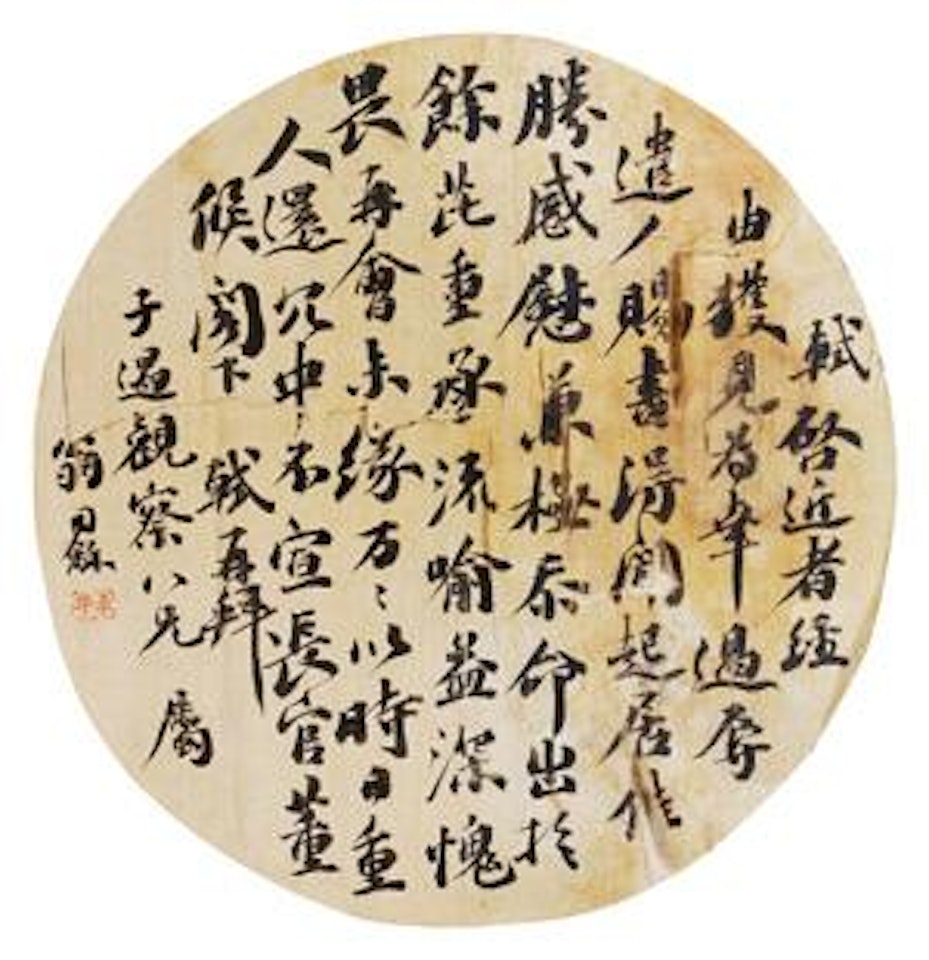 軾啓近者經
由獲見為幸過辱
遣人賜書得聞起居佳
勝感慰兼極忝命出於
餘芘重承流喻益深愧
畏再會未緣万〻以時自重
人還冗中〻不宣長官董
候閣下 軾再拜
觀察八兄 屬
翁同龢